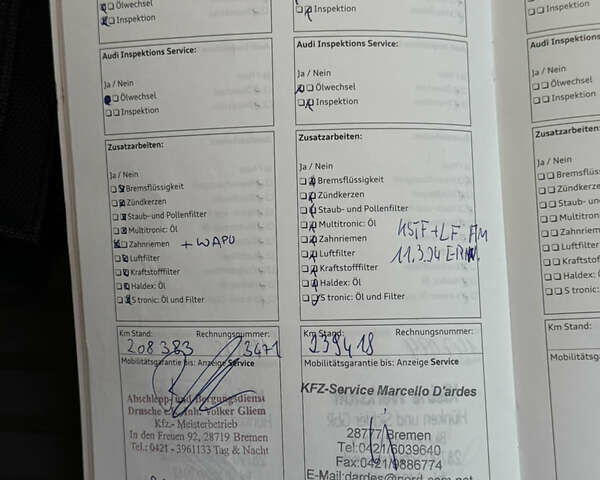 Ölwechsel
Inspektion
Audi Inspektions Service:
Ja / Nein
Ölwechsel
Inspektion
Zusatzarbeiten:
Ja / Nein
Bremsflüssigkeit
Zündkerzen
Staub- und Pollenfilter
Multitronic: Öl
Zahnriemen + WAPU
Luftfilter
Kraftstofffilter
Haldex: Öl
S tronic: Öl und Filter
Km Stand: Rechnungsnummer:
208 383 3471
Mobilitätsgarantie bis: Anzeige Service
Abschlepp- und Bergungsdienst
Drusche Inh. Volker Gliem
Kfz.- Meisterbetrieb
In den Freuen 92, 28719 Bremen
Tel.: 0421 - 3961133 Tag & Nacht
Inspektion
Audi Inspektions Service:
Ja / Nein
Ölwechsel
Inspektion
Zusatzarbeiten:
Ja / Nein
Bremsflüssigkeit
Zündkerzen
Staub- und Pollenfilter
Multitronic: Öl
Zahnriemen
Luftfilter
Kraftstofffilter
Haldex: Öl
S tronic: Öl und Filter
Km Stand: Rechnungsnummer:
239418
Mobilitätsgarantie bis: Anzeige Service
KFZ-Service Marcello D'ardes
28777 Bremen
Tel:0421/6039640
Fax:0421/9886774
Inspektion
Audi Inspektions
Ja / Nein
Ölwechsel
Inspektion
Zusatzarbeiten:
Ja / Nein
Bremsflüss
Zündkerze
Staub- und
Multitroni
Zahnrieme
Luftfilter
Kraftstoff
Haldex: Öl
S tronic:
Km Stand:
Mobilitätsg